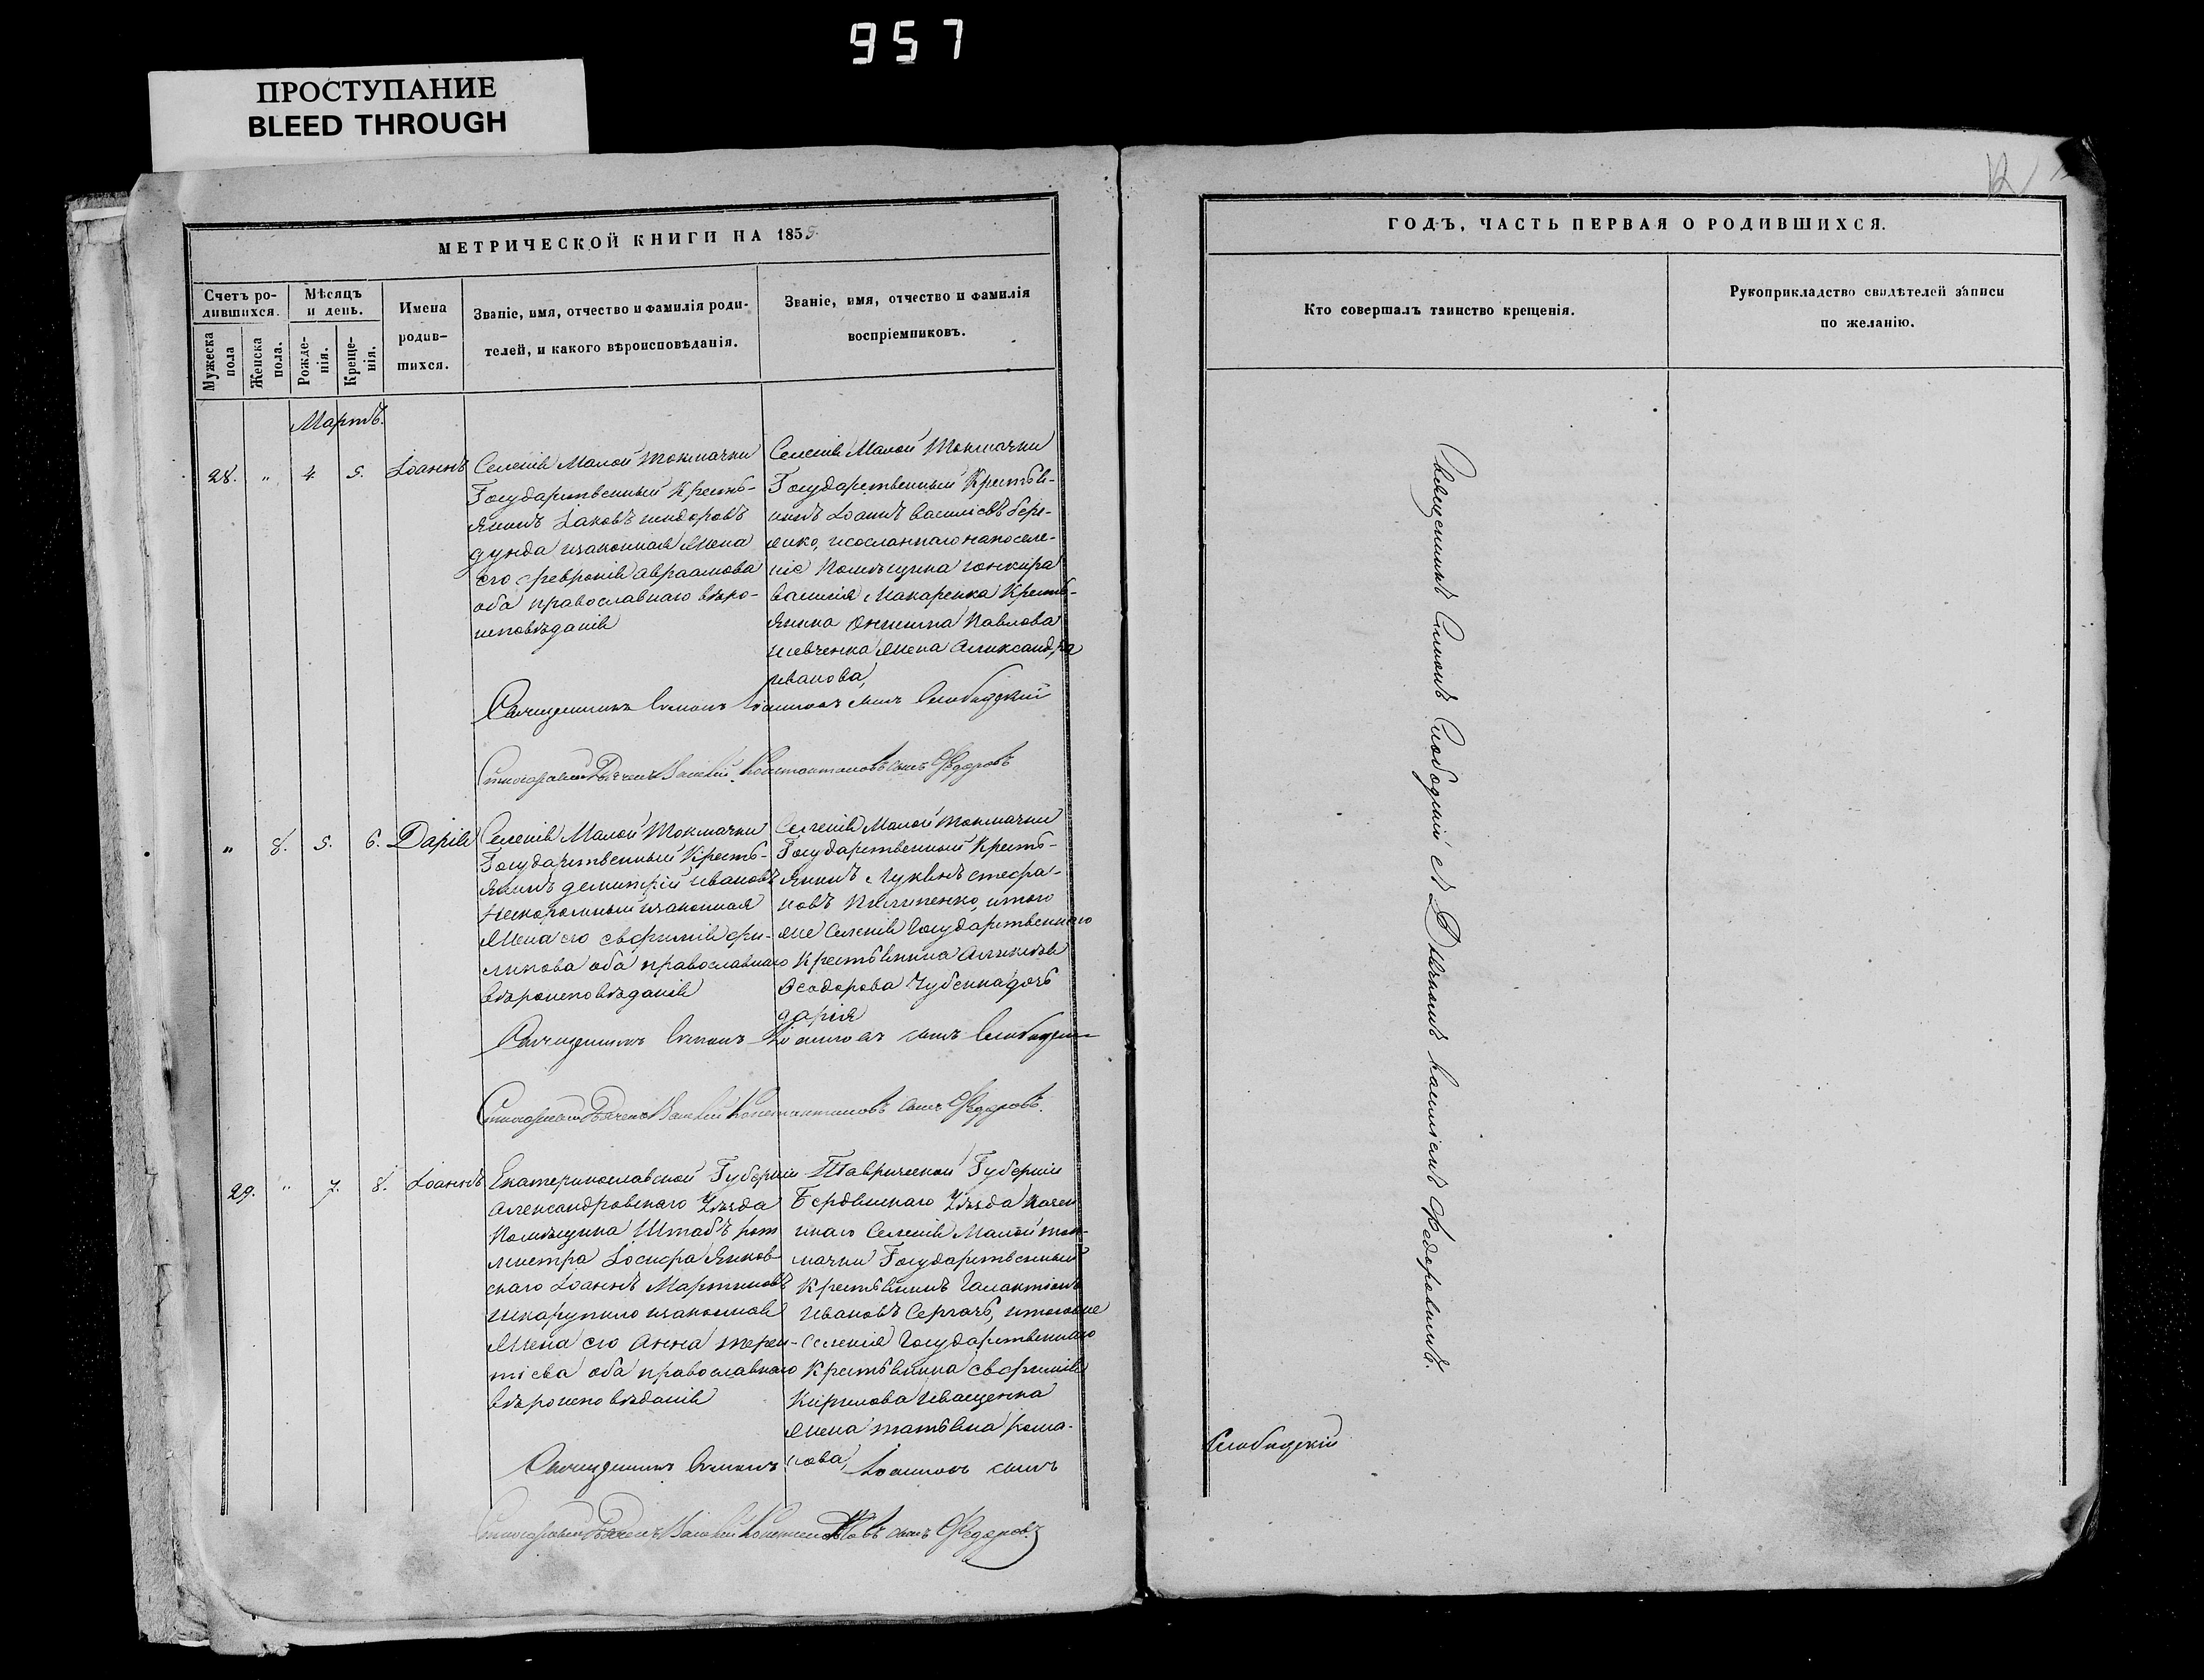 957
ПРОСТУПАНИЕ
BLEED THROUGH
МЕТРИЧЕСКОЙ КНИГИ НА 1855
Счетъ ро-
дившихся.
Мужеска
пола
Женска
пола.
Мѣсяцъ
и день.
Рожде-
нія.
Креще-
нія.
Имена
родив-
шихся.
Званіе, имя, отчество и фамилія роди-
телей, и какого вѣроисповѣданія.
Званіе, имя, отчество и фамилія
воспріемниковъ.
Мартъ.
28. „ 4 5. Іоаннъ
Селенія Малой Токмачки
Государственный Кресть-
янинъ Іаковъ
дунда изаконная жена
его февронія авраамова
оба православнаго вѣро-
исповѣданія
Селенія Малой Токмачки
Государственный Крестья-
нинъ Іоаннъ Василіевъ бере-
жко, исосланнаго напоселе-
ніе Помѣщика юнкера
Василія Макаренка Кресть-
янина Павлова
шевченка жена Александра
иванова,
Священникъ Симонъ Іоанновъ сынъ Слободскій
Дьячекъ Василій Константиновъ сынъ Федоровъ
„ 8. 5. 6. Дарія
Селенія Малой Токмачки
Государственный Кресть-
янинъ димитрій ивановъ
изаконная
жена его евфимія фи-
липова оба православнаго
вѣроисповѣданія
Селенія Малой Токмачки
Государственный Кресть-
янинъ Лукіянъ стефа-
новъ Пилипенко, итого
же Селенія Государственнаго
Крестьянина Алексѣя
Ѳеодорова Чубенка дочь
дарія
Священникъ Симонъ Іоанновъ сынъ Слободскій
Дьячекъ Василій Константиновъ сынъ Федоровъ.
29. „ 7. 8. Іоаннъ
Екатеринославской Губерніи
Александровскаго Уѣзда
Помѣщика Штабъ рот
мистра Іосифа Янков-
скаго Іоаннъ Мартиновъ
шкарупило изаконная
жена его Анна терен-
тіева оба православнаго
вѣроисповѣданія
Таврической Губерніи
Бердянскаго Уѣзда Казен
наго Селенія Малой ток-
мачки Государственный
Крестьянинъ Галактіонъ
ивановъ Сергачъ, итогоже
Селенія Государственнаго
Крестьянина евфимія
Кирилова иващенка
жена татьяна рома-
нова,
Священникъ Симонъ Іоанновъ сынъ
Дьячекъ Василій сынъ Федоровъ
12
ГОДЪ, ЧАСТЬ ПЕРВАЯ О РОДИВШИХСЯ.
Кто совершалъ таинство крещенія.
Рукоприкладство свидѣтелей записи
по желанію.
Священникъ Симонъ Слободскій съ Дьячкомъ Василіемъ Федоровымъ.
Слободскій